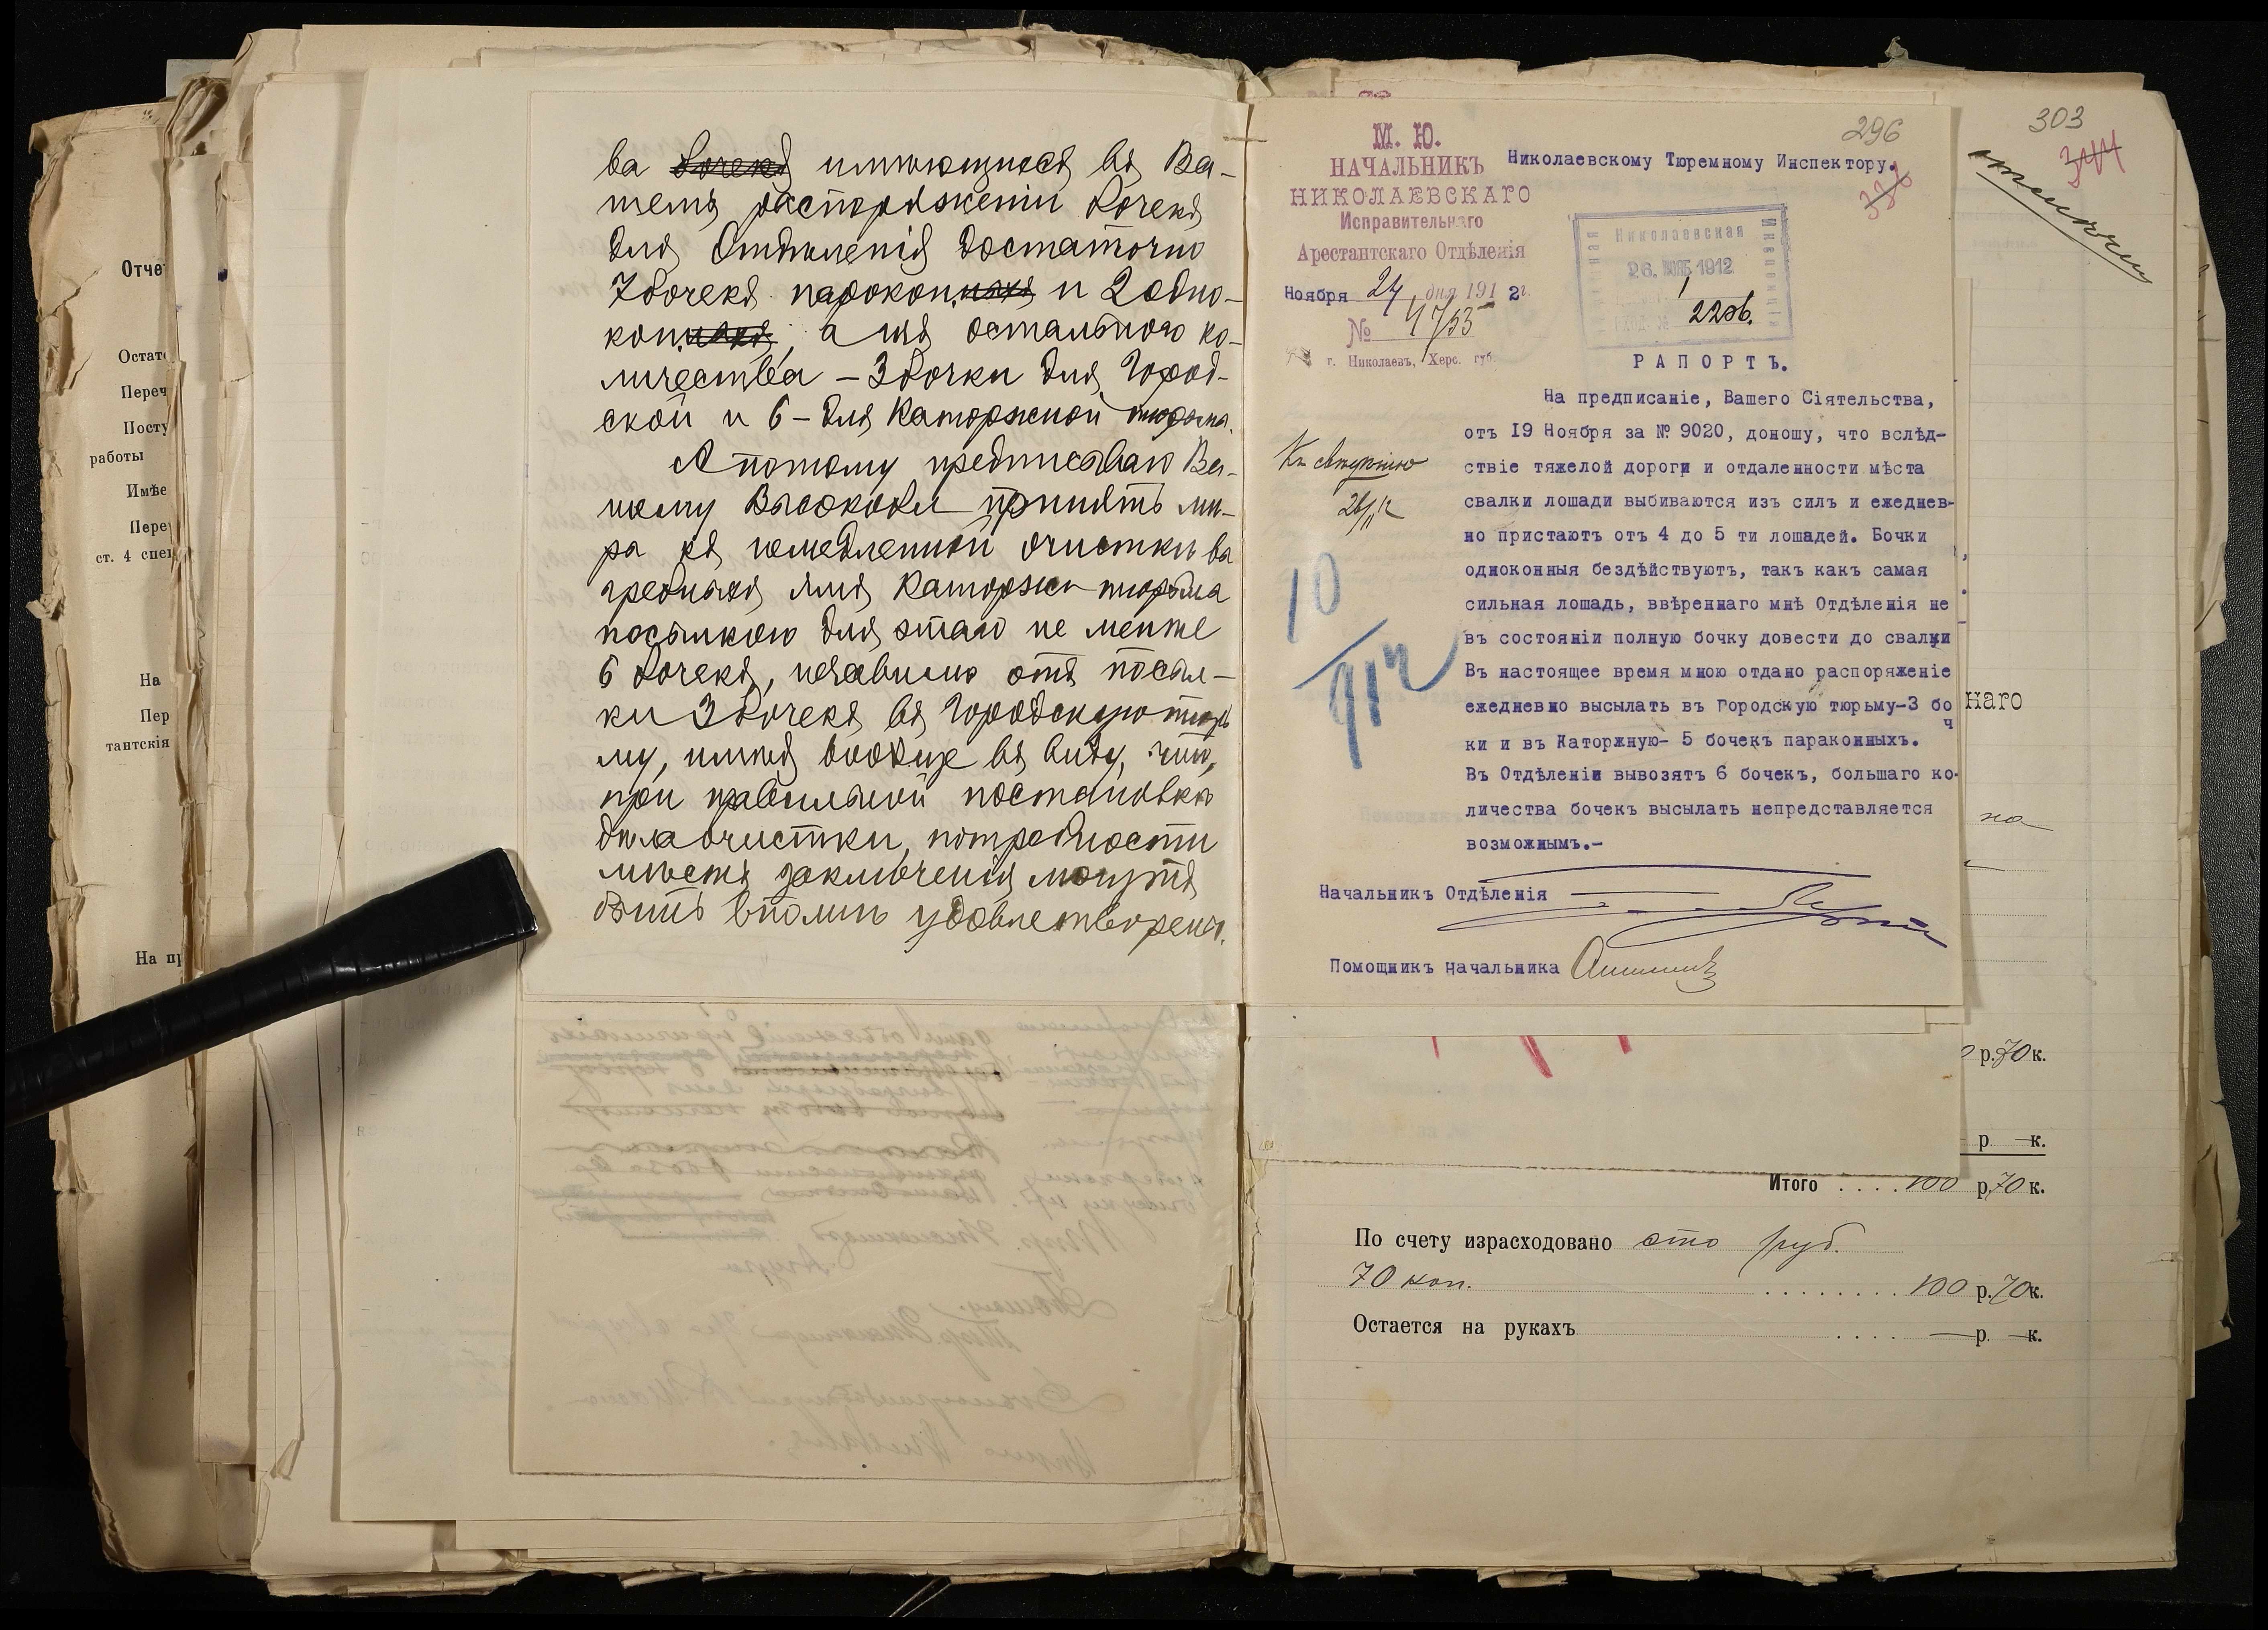 Отче
Остат
Переч
Посту
работы
Имѣе
Пере
ст. 4 спец
На
Пер
тантскія
На пр
ва бочекъ имѣющихся въ Ва-
шемъ распоряженіи бочекъ
для Отдѣленія достаточно
7 бочекъ парокон.ныхъ и 2 одно-
кон.ныхъ, а изъ остального ко-
личества – 3 бочки для Город-
ской и 6 – для Каторжной тюрьмы.
А потому предписываю Ва-
шему Высокобл принять мѣ-
ры къ немедленной очисткѣ вы
гребныхъ ямъ Каторжн тюрьмы
посылкою для этаго не менѣе
6 бочекъ, независимо отъ посыл-
ки 3 бочекъ въ Городскую тюрь
му, имѣя вообще въ виду, что,
при правильной постановкѣ
дѣла очистки, потребности
мѣстъ заключенія могутъ
быть вполнѣ удовлетворены.
М. Ю.
НАЧАЛЬНИКЪ
НИКОЛАЕВСКАГО
Исправительнаго
Арестантскаго Отдѣленія
Ноября 24 дня 1912 г.
№ 4753
г. Николаевъ, Херс. губ.
296
Николаевскому Тюремному Инспектору.
Николаевская
26. НОЯБ. 1912
РАПОРТЪ.
На предписаніе, Вашего Сіятельства,
отъ 19 Ноября за № 9020, доношу, что вслѣд-
ствіе тяжелой дороги и отдаленности мѣста
свалки лошади выбиваются изъ силъ и ежеднев-
но пристаютъ отъ 4 до 5 ти лошадей. Бочки
одноконныя бездѣйствуютъ, такъ какъ самая
сильная лошадь, ввѣреннаго мнѣ Отдѣленія не
въ состояніи полную бочку довести до свалки
Въ настоящее время мною отдано распоряженіе
ежедневно высылать въ Городскую тюрьму-3 бо
ч
ки и въ Каторжную- 5 бочекъ параконныхъ.
Въ Отдѣленіи вывозятъ 6 бочекъ, большаго ко-
личества бочекъ высылать непредставляется
возможнымъ.-
10/912
Начальникъ Отдѣленія
Помощникъ Начальника
303
наго
на
р. 70 к.
р — к.
Итого .... 100 р. 70 к.
По счету израсходовано сто руб.
70 коп. ........ 100 р. 70 к.
Остается на рукахъ .... — р. — к.